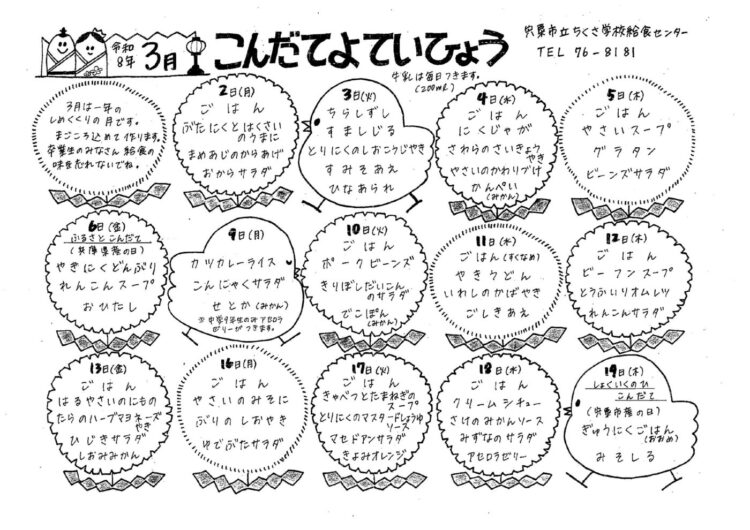 令和
8年
3月
こんだてよていひょう
宍粟市立ちくさ学校給食センター
TEL 76-8181
牛乳は毎日つきます。
(200mL)
3月は一年の
しめくくりの月です。
まごころ込めて作ります。
卒業生のみなさん 給食の
味を忘れないでね。
2日(月)
ごはん
ぶたにくとはくさい
のうまに
まめあじのからあげ
おからサラダ
3日(火)
ちらしずし
すましじる
とりにくのしおこうじやき
すみそあえ
ひなあられ
4日(水)
ごはん
にくじゃが
さわらのさいきょう
やき
やさいのかわりづけ
かんぺい
(みかん)
5日(木)
ごはん
やさいスープ
グラタン
ビーンズサラダ
6日(金)
ふるさとこんだて
(兵庫県産の日)
やきにくどんぶり
れんこんスープ
おひたし
9日(月)
カツカレーライス
こんにゃくサラダ
せとか(みかん)
※中学3年生のみアセロラ
ゼリーがつきます。
10日(火)
ごはん
ポークビーンズ
きりぼしだいこん
のサラダ
でこぽん
(みかん)
11日(水)
ごはん(すくなめ)
やきうどん
いわしのかばやき
ごしきあえ
12日(木)
ごはん
ビーフンスープ
とうふいりオムレツ
れんこんサラダ
13日(金)
ごはん
はるやさいのにもの
たらのハーブマヨネーズ
やき
ひじきサラダ
しおみみかん
16日(月)
ごはん
やさいのみそに
ぶりのしおやき
ゆでぶたサラダ
17日(火)
ごはん
きゃべつとたまねぎの
スープ
とりにくのマスタードしょうゆ
ソース
マセドアンサラダ
きよみオレンジ
18日(水)
ごはん
クリームシチュー
さけのみかんソース
みずなのサラダ
アセロラゼリー
19日(木)
しょくいくのひ
こんだて
(宍粟市産の日)
ぎゅうにくごはん
(おおめ)
みそしる